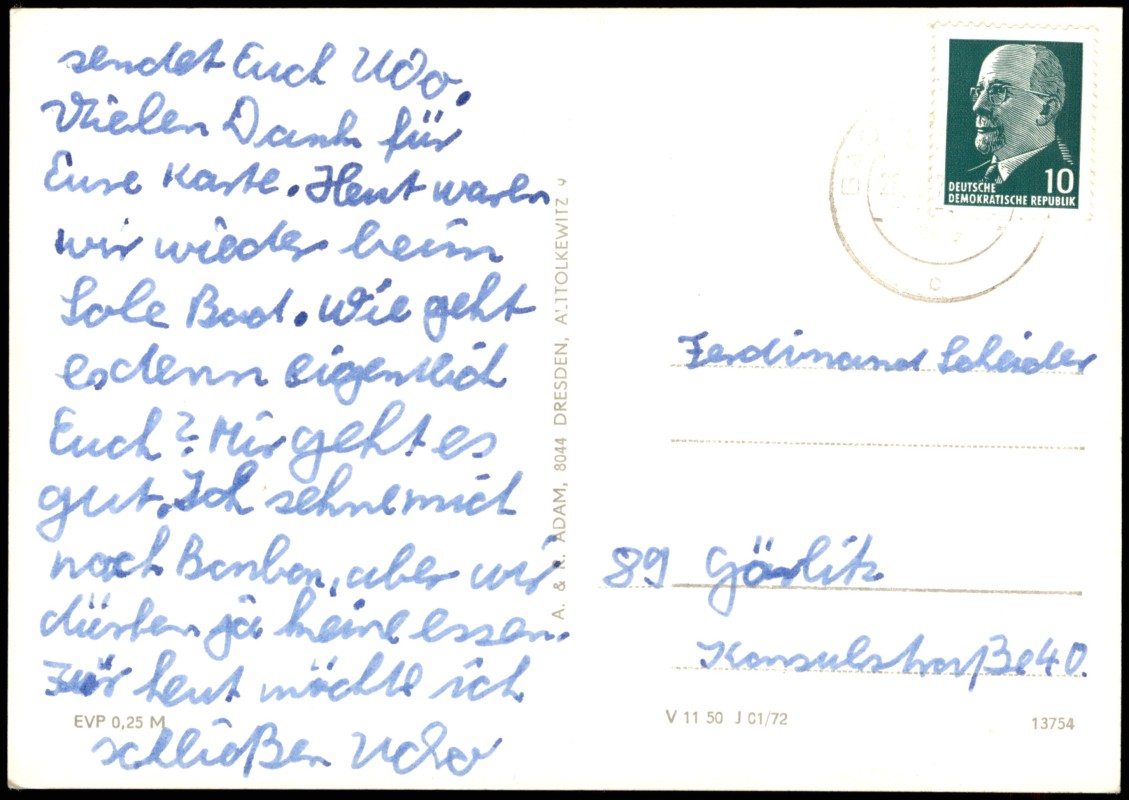 sendet Euch Udo.
Vielen Dank für
Eure Karte. Heut waren
wir wieder beim
Sole Bad. Wie geht
es denn eigentlich
Euch? Mir geht es
gut. Ich sehne mich
nach Bonbon, aber wir
dürfen ja keine essen.
Für heut möchte ich
schließen Udo
EVP 0,25 M
A. & R. ADAM, 8044 DRESDEN, ALTTOLKEWITZ
DEUTSCHE
DEMOKRATISCHE REPUBLIK
10
Ferdinand Scheider
89 Görlitz
Konsulstraße 40.
V 11 50 J C1/72
13754